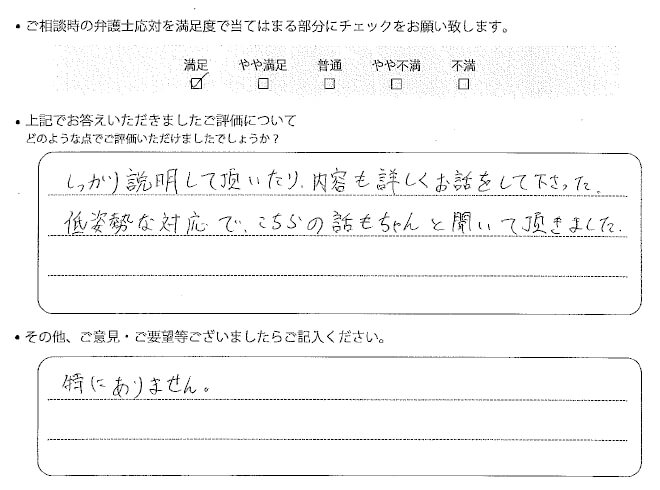 ・ご相談時の弁護士応対を満足度で当てはまる部分にチェックをお願い致します。
満足 やや満足 普通 やや不満 不満
☑ □ □ □ □
・上記でお答えいただきましたご評価について
どのような点でご評価いただけましたでしょうか?
しっかり説明して頂いたり、内容も詳しくお話をして下さった。
低姿勢な対応で、こちらの話もちゃんと聞いて頂きました。
・その他、ご意見・ご要望等ございましたらご記入ください。
特にありません。